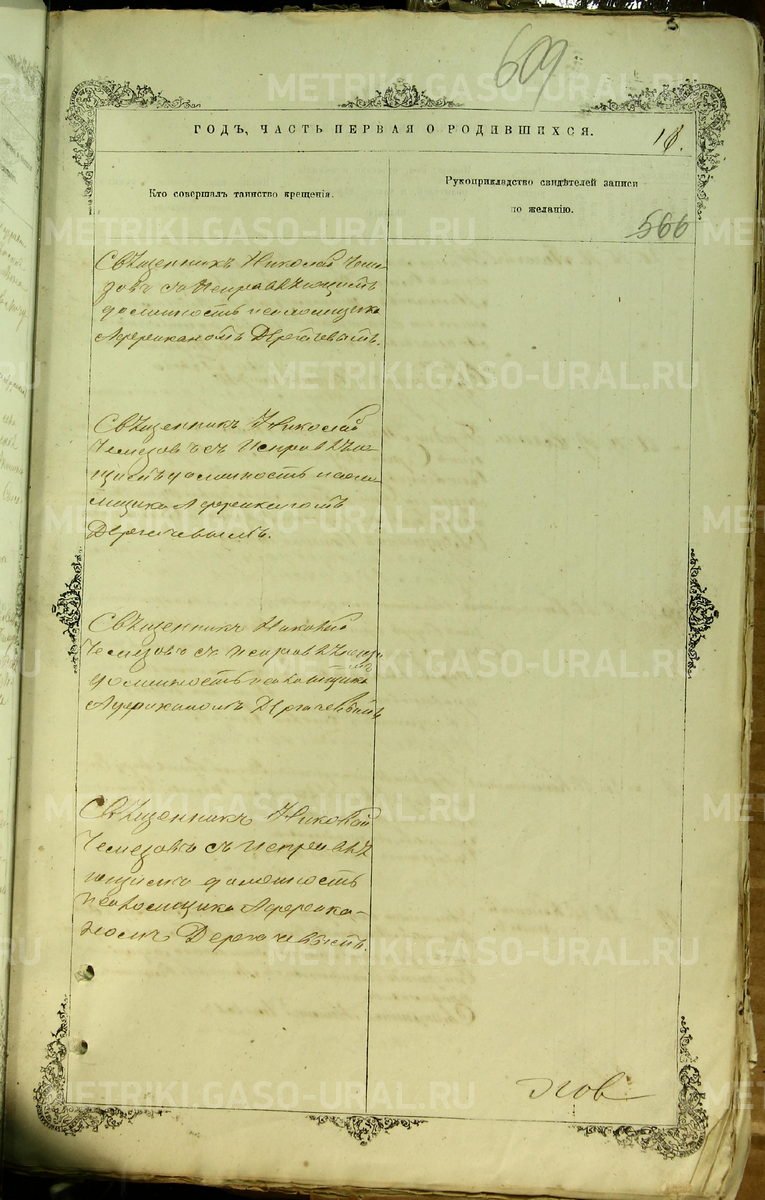 609
ГОДЪ, ЧАСТЬ ПЕРВАЯ О РОДИВШИХСЯ.
Кто совершалъ таинство крещенія.
Рукоприкладство свидѣтелей записи
по желанію.
566
Священникъ Николай Чеме-
зовъ съ исправляющимъ
должность псаломщика
Африканомъ Дергачевымъ.
Священникъ Николай
Чемезовъ съ исправляю-
щимъ должность псало-
мщика Африканомъ
Дергачевымъ.
Священникъ Николай
Чемезовъ съ исправляющимъ
должность псаломщика
Африканомъ Дергачевымъ
Священникъ Николай
Чемезовъ съ исправля
ющимъ должность
псаломщика Африка-
номъ Дергачевымъ.
METRIKI.GASO-URAL.RU